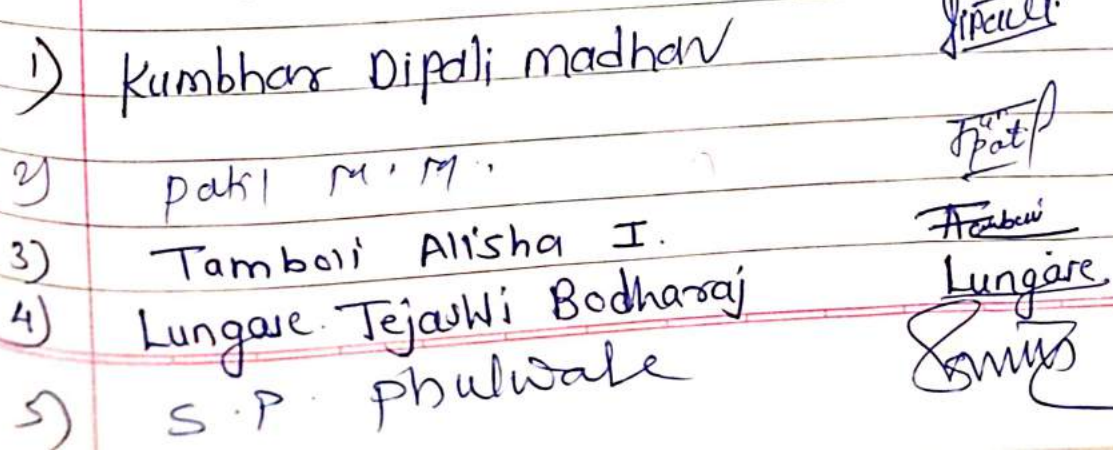 1) Kumbhar Dipali madhav Dipali
2) Patil M. M. Patil
3) Tamboli Alisha I. Tamboli
4) Lungare Tejaswi Bodharaj Lungare
5) S.P. Phulwale